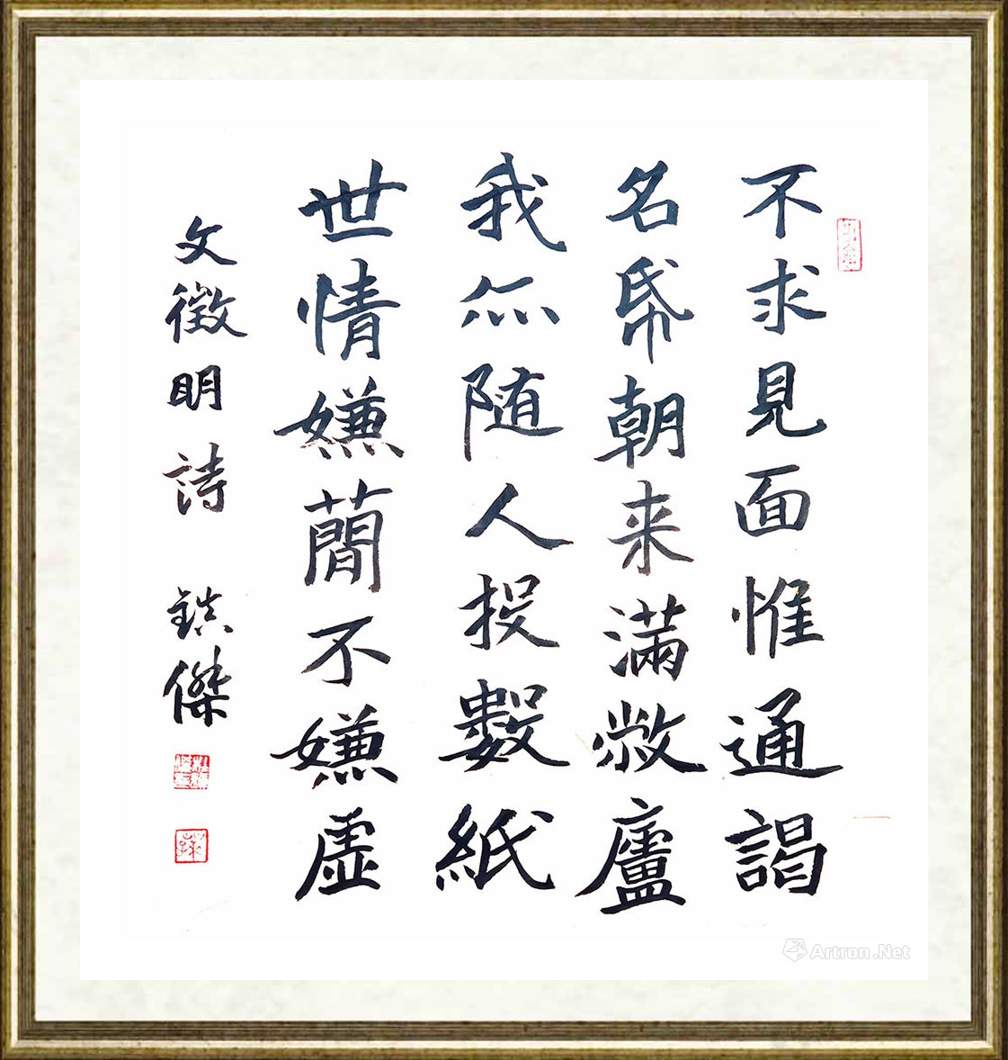 不求見面惟通謁
名帋朝来滿敝廬
我亦随人投數紙
世情嫌簡不嫌虚
文徵明詩 鎮傑
Artron.Net